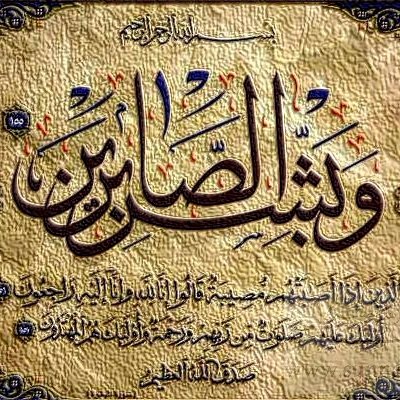 بسم الله الرحمن الرحيم
وَبَشِّرِ الصَّابِرِينَ ١٥٥
الَّذِينَ إِذَا أَصَابَتْهُم مُّصِيبَةٌ قَالُوا إِنَّا لِلَّهِ وَإِنَّا إِلَيْهِ رَاجِعُونَ
أُولَئِكَ عَلَيْهِمْ صَلَوَاتٌ مِّن رَّبِّهِمْ وَرَحْمَةٌ وَأُولَئِكَ هُمُ الْمُهْتَدُونَ ١٥٧
صدق الله العظيم